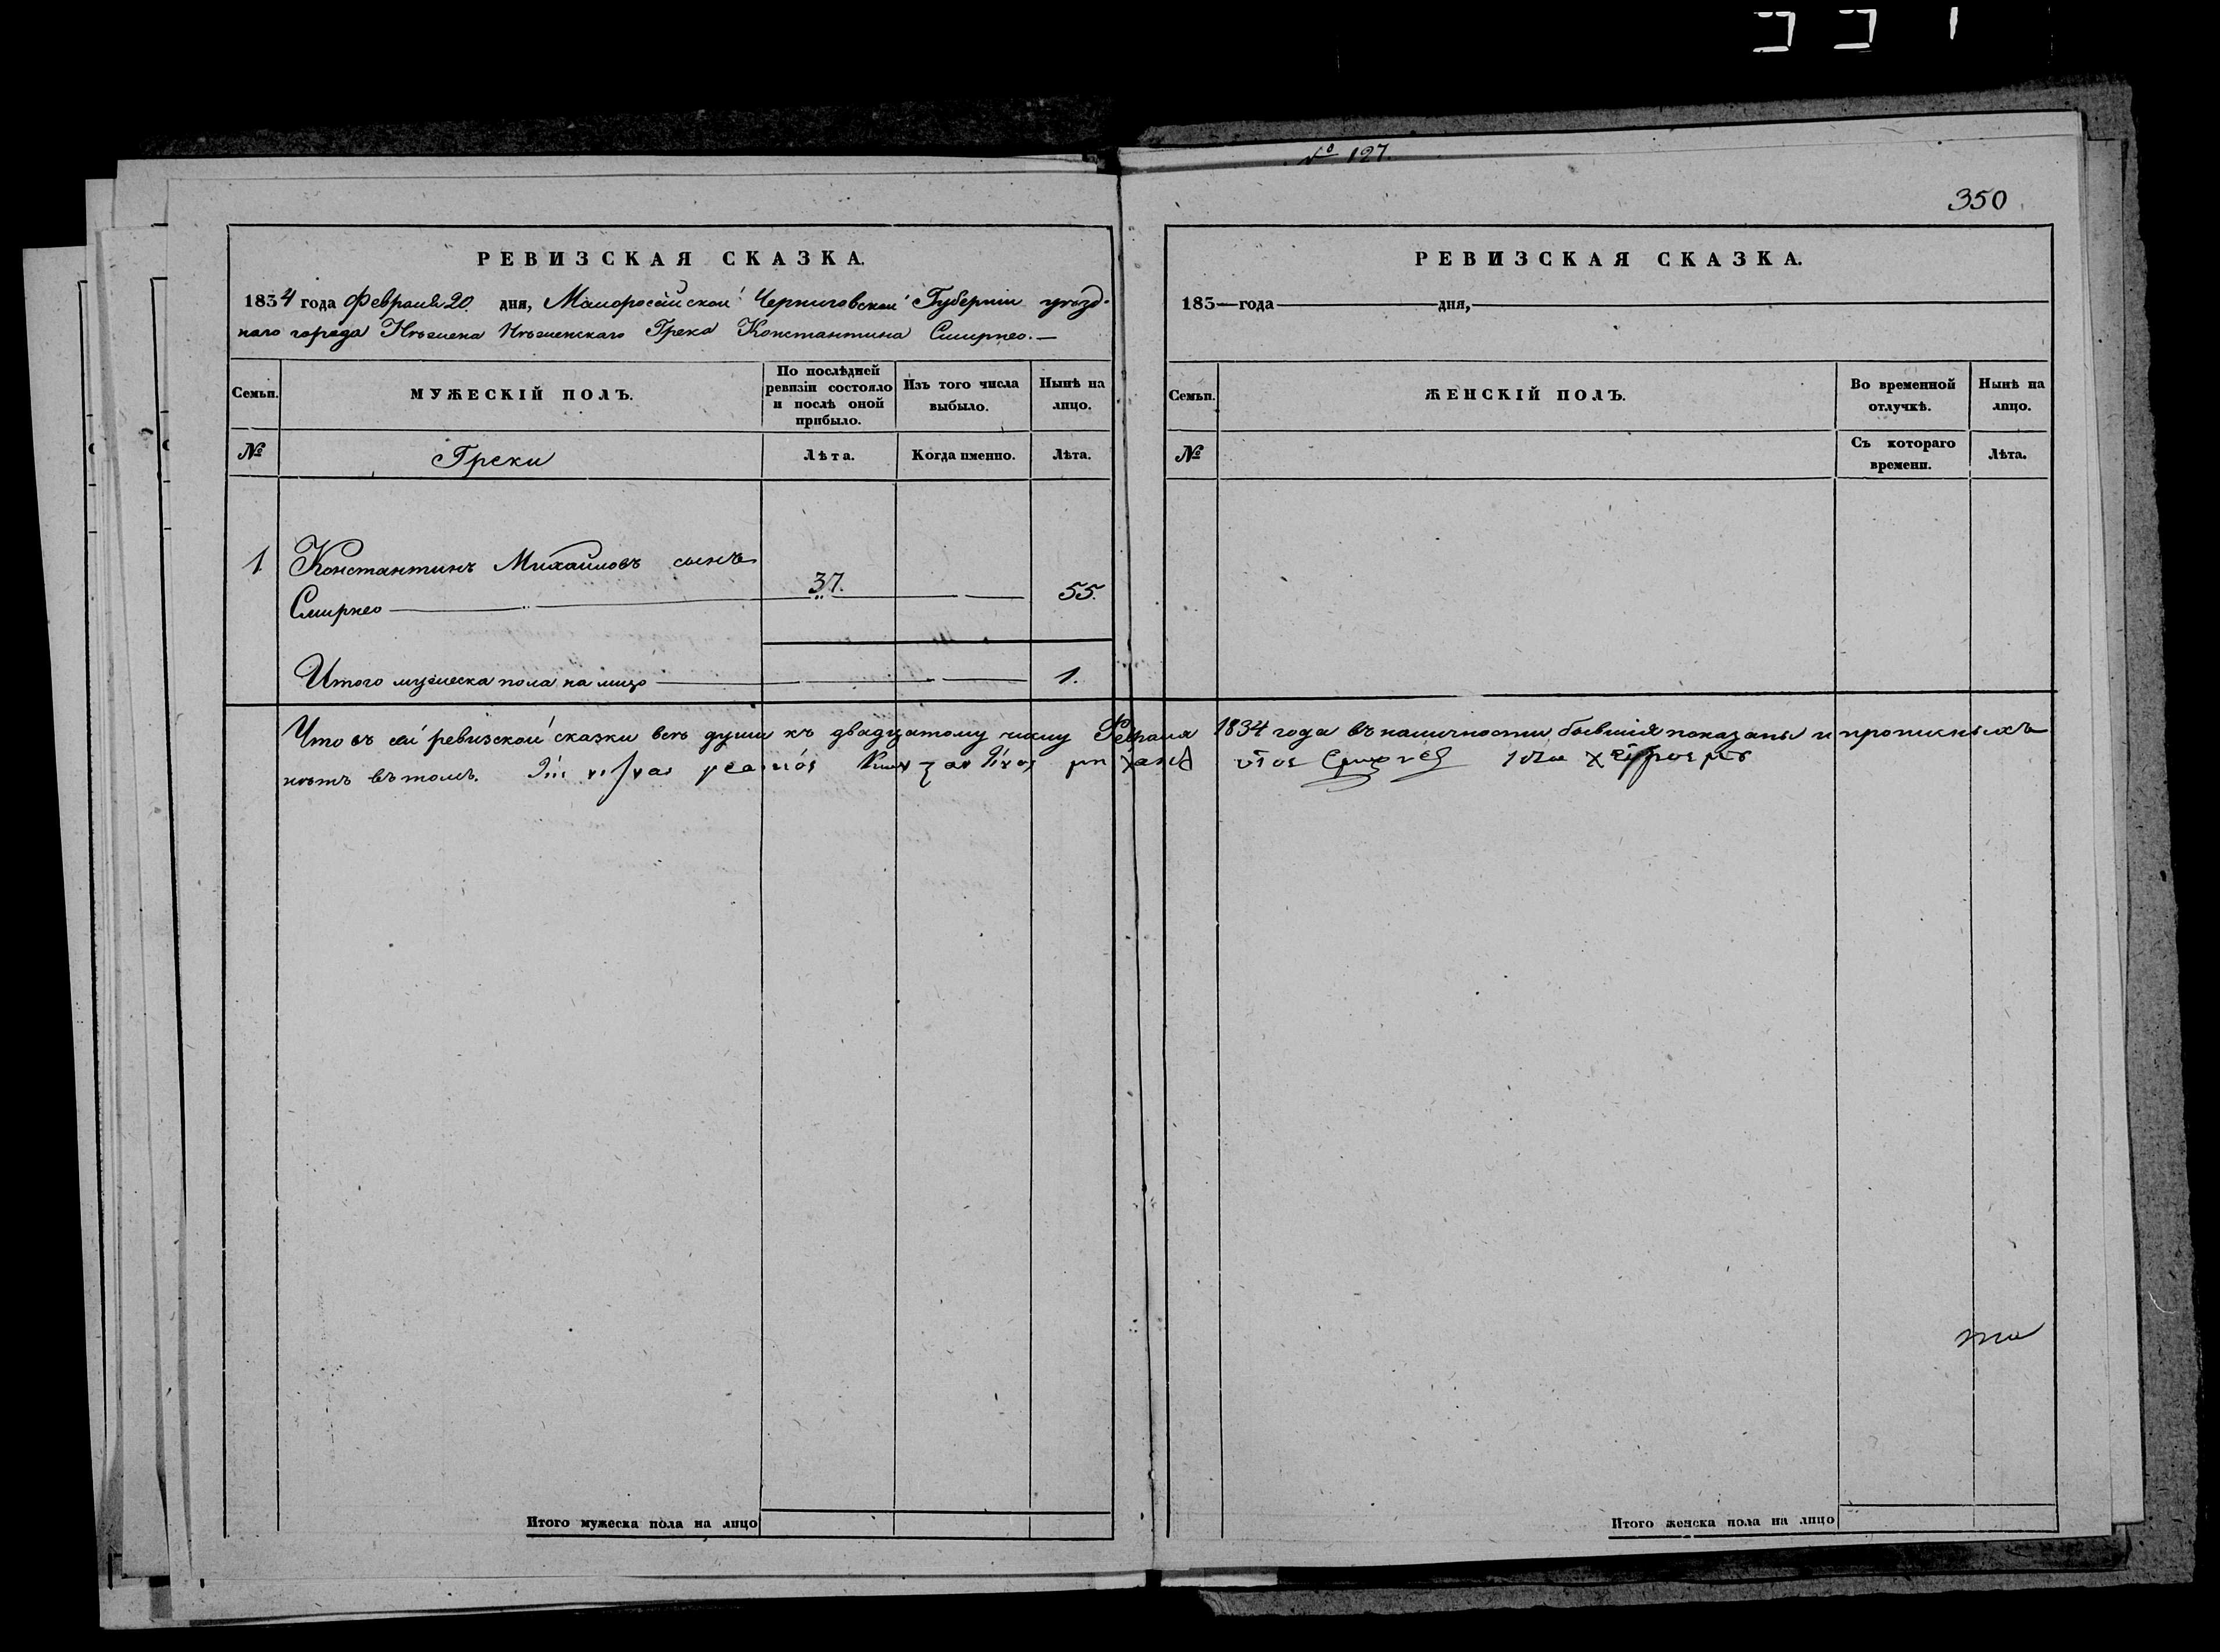 № 127.
350
РЕВИЗСКАЯ СКАЗКА.
1834 года Февраля 20. дня, Малоросейской Черниговской Губернии уѣзд-
наго города Нѣжина Нѣжинскаго Грека Константина Смирнео.—
Семьи. МУЖЕСКІЙ ПОЛЪ. По послѣдней ревизіи состояло и послѣ оной прибыло. Изъ того числа выбыло. Нынѣ на лицо.
№ Греки Лѣта. Когда именно. Лѣта.
1. Константинъ Михайловъ сынъ
Смирнео 37. 55.
Итого мужеска пола на лицо 1.
РЕВИЗСКАЯ СКАЗКА.
183— года — дня,
Семьи. ЖЕНСКІЙ ПОЛЪ. Во временной отлучкѣ. Нынѣ на лицо.
№ Съ котораго времени. Лѣта.
Что въ сей ревизской сказки всѣ души къ двадцатому числу Февраля 1834 года въ наличности бывшія показаны и прописныхъ
нѣтъ въ томъ.
Итого мужеска пола на лицо
Итого женска пола на лицо